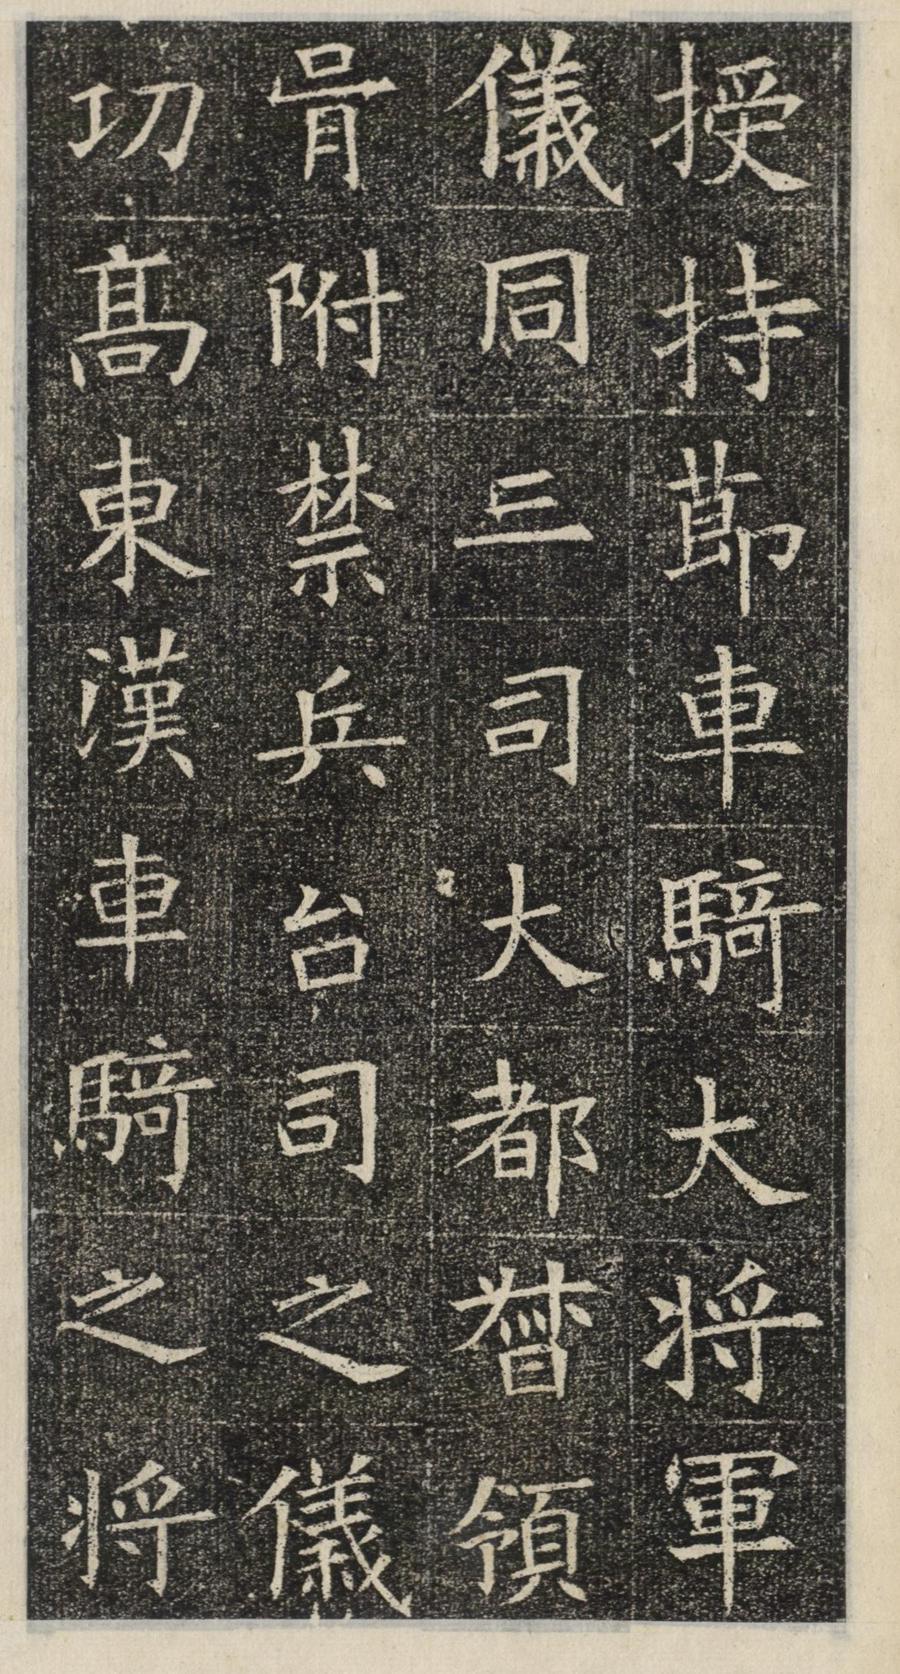 授持節車騎大將軍
儀同三司大都督領
胥附禁兵台司之儀
功高東漢車騎之將